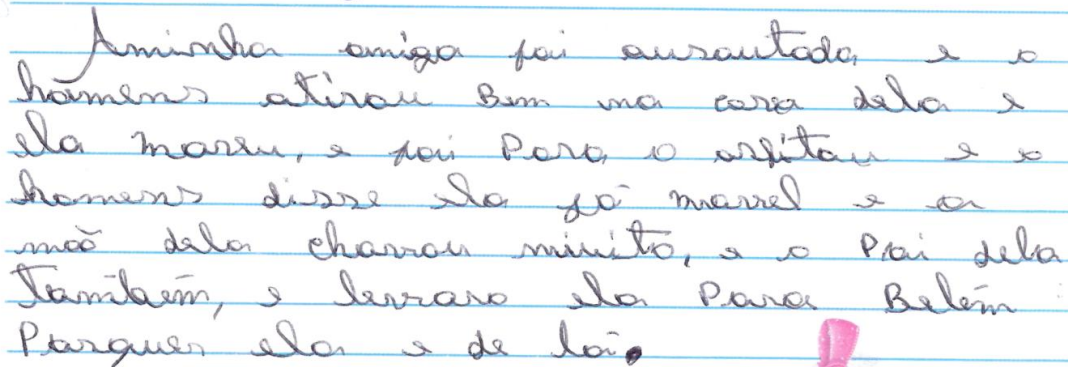 Aminha amiga foi ausautada e o
homens atirou Bem na cara dela e
ela moreu, e foi Para o ospitau e o
homens disse ela já morrel e a
mãe dela charrou muinto, e o Pai dela
também, e levraro ela Para Belém
Porquer ela e de lá.